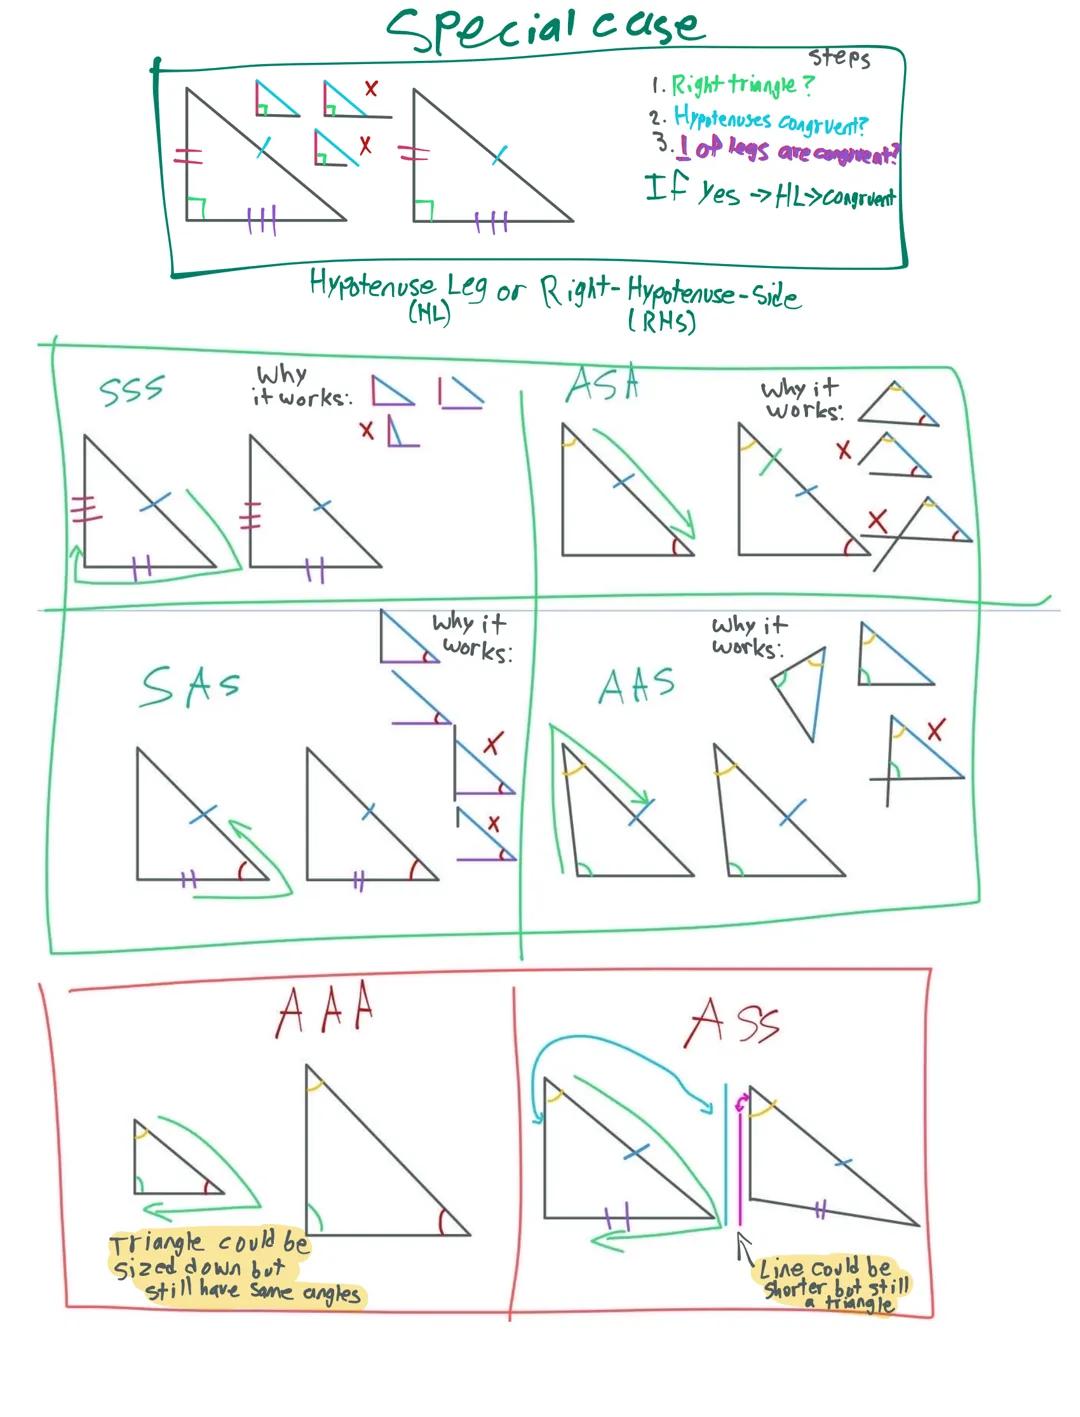 Special case
steps
1. Right triangle?
2. Hypotenuses congruent?
3. 1 of legs are congruent?
If yes → HL → congruent
x
x
Hypotenuse Leg or Right-Hypotenuse-Side
(HL) (RHS)
SSS
Why
it works:
x
ASA
Why it
works:
x
x
SAS
Why it
works:
x
x
AAS
Why it
works:
x
AAA
Triangle could be
sized down but
still have same angles
ASS
Line could be
shorter but still
a triangle